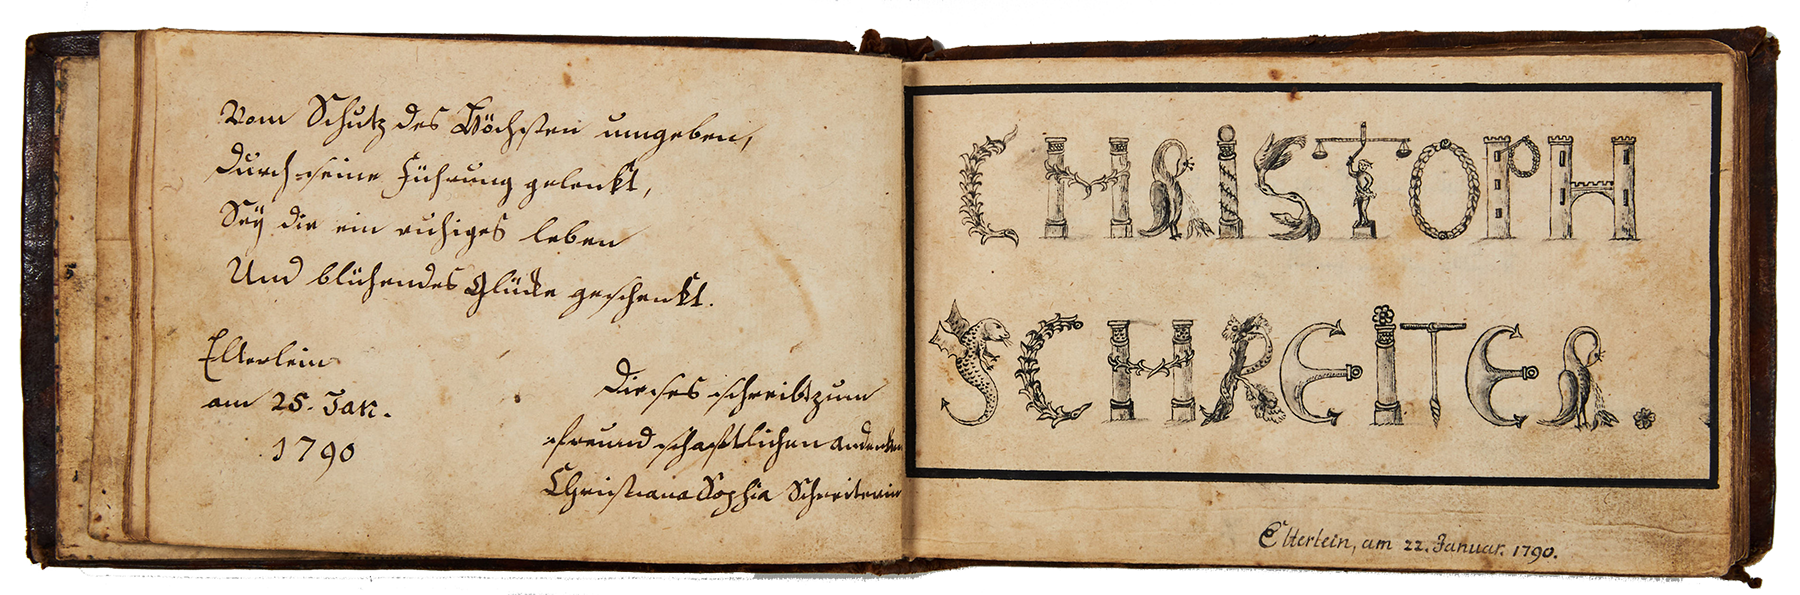 Vom Schutz des Höchsten umgeben,
Durch seine Führung gelenkt,
Sey dir ein ruhiges leben
Und blühendes Glücke geschenkt.
Elterlein
am 25. Jan.
1790
Dieses schreibt zum
freundschaftlichen Andenken
Christiana Sophia Schreiterin
CHRISTOPH
SCHREITER.
Elterlein, am 22. Januar. 1790.